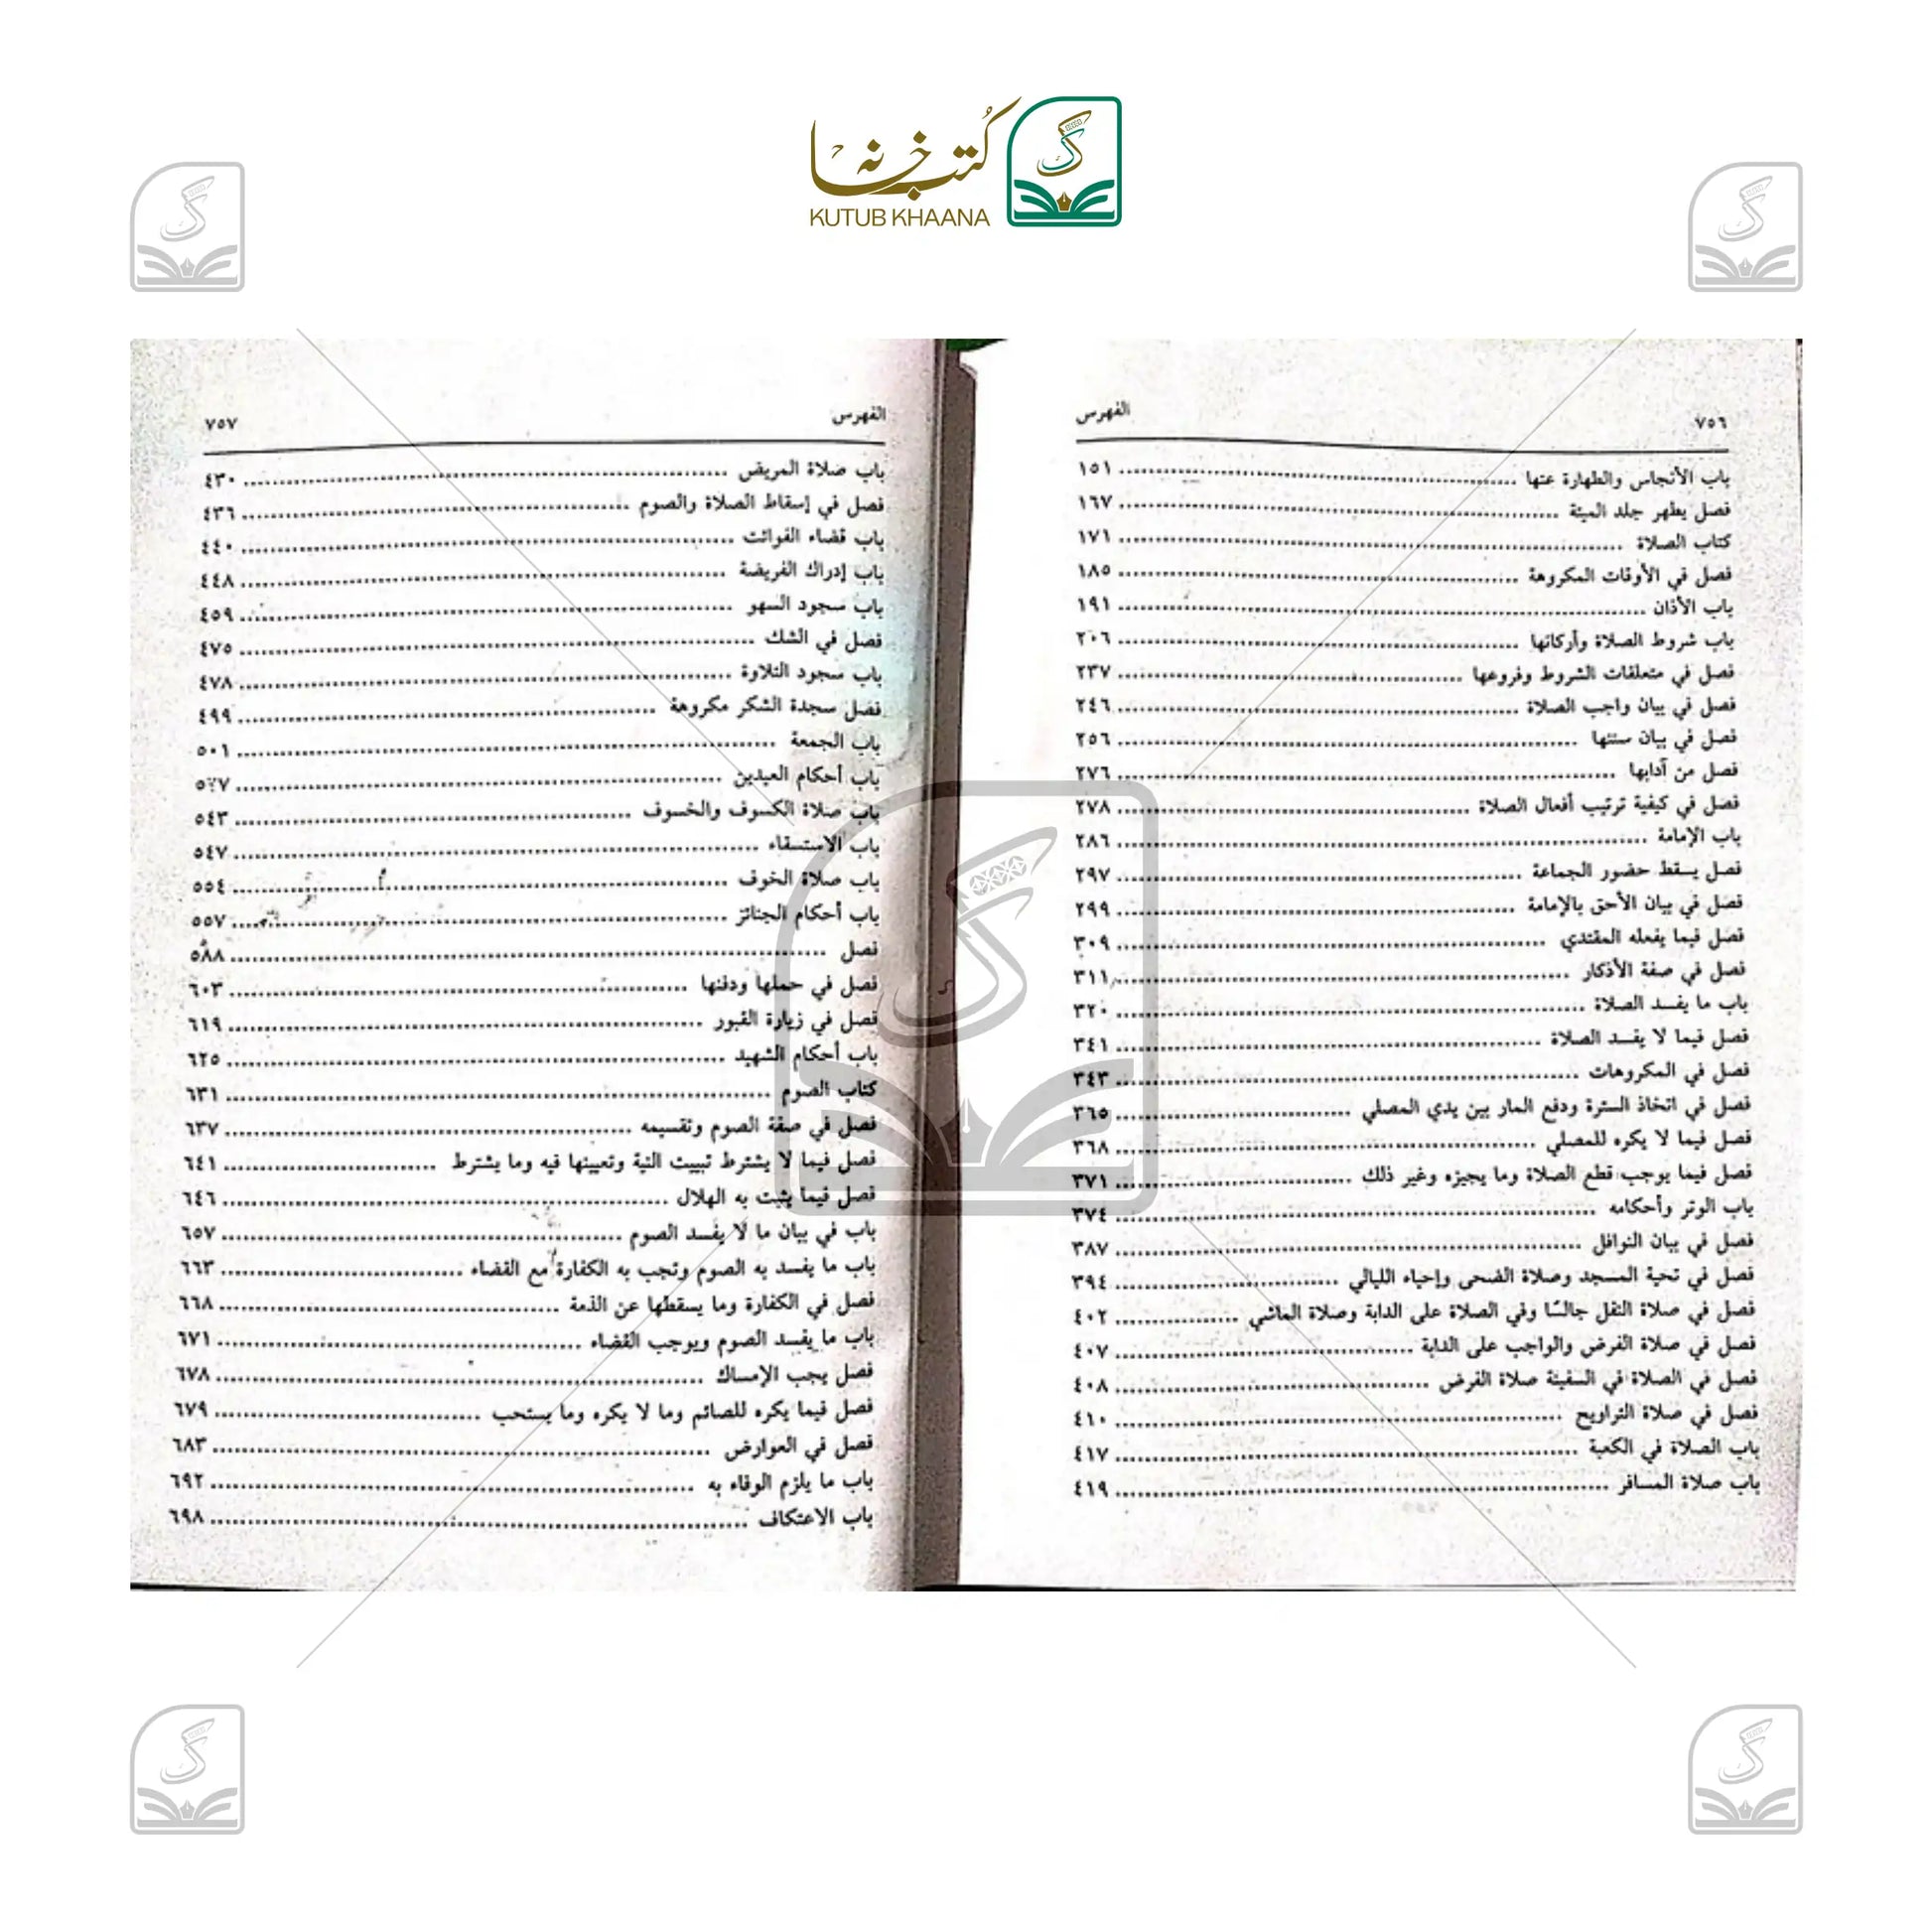 كتب خانہ
KUTUB KHAANA
٧٥٦ الفهرس
باب الأنجاس والطهارة عنها ١٥١
فصل يطهر جلد الميتة ١٦٧
كتاب الصلاة ١٧١
فصل في الأوقات المكروهة ١٨٥
باب الأذان ١٩١
باب شروط الصلاة وأركانها ٢٠٦
فصل في متعلقات الشروط وفروعها ٢٣٧
فصل في بيان واجب الصلاة ٢٤٦
فصل في بيان سننها ٢٥٦
فصل من آدابها ٢٧٦
فصل في كيفية ترتيب أفعال الصلاة ٢٧٨
باب الإمامة ٢٨٦
فصل يسقط حضور الجماعة ٢٩٧
فصل في بيان الأحق بالإمامة ٢٩٩
فصل فيما يفعله المقتدي ٣٠٩
فصل في صفة الأذكار ٣١١
باب ما يفسد الصلاة ٣٢٠
فصل فيما لا يفسد الصلاة ٣٤١
فصل في المكروهات ٣٤٣
فصل في اتخاذ السترة ودفع المار بين يدي المصلي ٣٦٥
فصل فيما لا يكره للمصلي ٣٦٨
فصل فيما يوجب قطع الصلاة وما يجيزه وغير ذلك ٣٧١
باب الوتر وأحكامه ٣٧٤
فصل في بيان النوافل ٣٨٧
فصل في تحية المسجد وصلاة الضحى وإحياء الليالي ٣٩٤
فصل في صلاة النفل جالسًا وفي الصلاة على الدابة وصلاة الماشي ٤٠٢
فصل في صلاة الفرض والواجب على الدابة ٤٠٧
فصل في الصلاة في السفينة صلاة الفرض ٤٠٨
فصل في صلاة التراويح ٤١٠
باب الصلاة في الكعبة ٤١٧
باب صلاة المسافر ٤١٩
الفهرس ٧٥٧
باب صلاة المريض ٤٣٠
فصل في إسقاط الصلاة والصوم ٤٣٦
باب قضاء الفوائت ٤٤٠
باب إدراك الفريضة ٤٤٨
باب سجود السهو ٤٥٩
فصل في الشك ٤٧٥
باب سجود التلاوة ٤٧٨
فصل سجدة الشكر مكروهة ٤٩٩
باب الجمعة ٥٠١
باب أحكام العيدين
باب صلاة الكسوف والخسوف ٥٤٣
باب الاستسقاء ٥٤٧
باب صلاة الخوف ٥٥٤
باب أحكام الجنائز ٥٥٧
فصل ٥٨٨
فصل في حملها ودفنها ٦٠٣
فصل في زيارة القبور ٦١٩
باب أحكام الشهيد ٦٢٥
كتاب الصوم ٦٣١
فصل في صفة الصوم وتقسيمه ٦٣٧
فصل فيما لا يشترط تبييت النية وتعيينها فيه وما يشترط ٦٤١
فصل فيما يثبت به الهلال ٦٤٦
باب في بيان ما لا يفسد الصوم ٦٥٧
باب ما يفسد به الصوم وتجب به الكفارة مع القضاء ٦٦٣
فصل في الكفارة وما يسقطها عن الذمة ٦٦٨
باب ما يفسد الصوم ويوجب القضاء ٦٧١
فصل يجب الإمساك ٦٧٨
فصل فيما يكره للصائم وما لا يكره وما يستحب ٦٧٩
فصل في العوارض ٦٨٣
باب ما يلزم الوفاء به ٦٩٢
باب الاعتكاف ٦٩٨